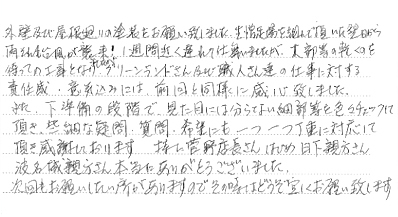 外壁及び屋根廻りの塗装をお願い致しました。生憎足場を組んで頂いた翌日から
雨続き台風が襲来！1週間近く遅れて仕舞いましたが、各部署の乾くのを
待っての工事となりましたが、グリーンランドさん及び職人さん達の仕事に対する
責任感・意気込みには、前回と同様に感心致しました。
また、下準備の段階で、見た目には分らない細部等を色々チェックして
頂き、些細な疑問・質問・希望にも一つ一つ丁重に対応して
頂き感謝しております 特に菅野店長さんはじめ日下親方さん
波名城親方さん本当にありがとうございました。
次回もお願いしたい所がありますのでその時はどうぞ宜しくお願い致します